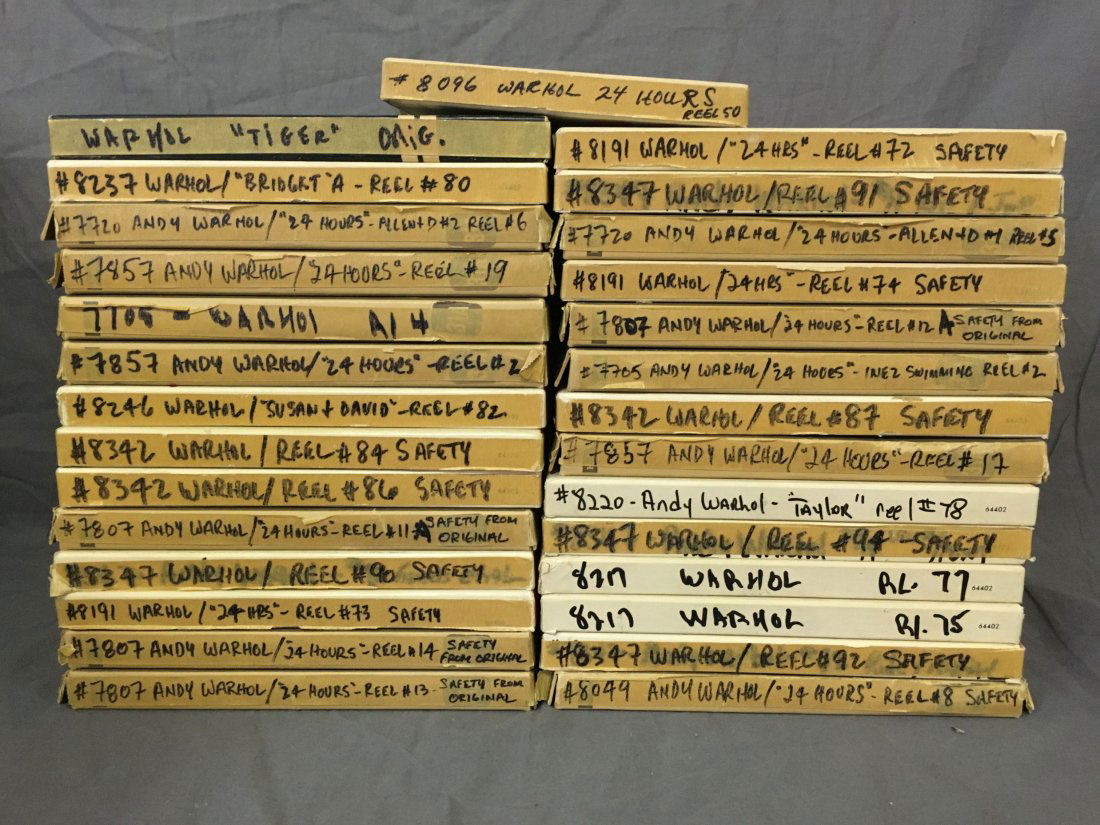 # 8096 WARHOL 24 HOURS
REEL 50
WARHOL "TIGER" ORIG.
#8237 WARHOL/"BRIDGET" A - REEL #80
#7720 ANDY WARHOL/"24 HOURS"-ALLEN+D#2 REEL#6
#7857 ANDY WARHOL/"24 HOURS"-REEL #19
7705 - WARHOL Rl 4
#7857 ANDY WARHOL/"24 HOURS"-REEL#2
#8246 WARHOL/"SUSAN+DAVID"-REEL#82
#8342 WARHOL/REEL#84 SAFETY
#8342 WARHOL/REEL #86 SAFETY
#7807 ANDY WARHOL/"24 HOURS"-REEL#11A SAFETY FROM
ORIGINAL
#8347 WARHOL/REEL #90 SAFETY
#8191 WARHOL/"24 HRS"-REEL #73 SAFETY
#7807 ANDY WARHOL/"24 HOURS"-REEL#14 SAFETY
FROM ORIGINAL
#7807 ANDY WARHOL/"24 HOURS"-REEL#13- SAFETY FROM
ORIGINAL
#8191 WARHOL/"24 HRS"-REEL #72 SAFETY
#8347 WARHOL/REEL #91 SAFETY
#7720 ANDY WARHOL/"24 HOURS"-ALLEN+D#1 REEL#5
#8191 WARHOL/"24HRS"-REEL #74 SAFETY
#7807 ANDY WARHOL/"24 HOURS"-REEL#12 A SAFETY FROM
ORIGINAL
#7705 ANDY WARHOL/"24 HOURS"-INEZ SWIMMING REEL#2
#8342 WARHOL/REEL#87 SAFETY
#7857 ANDY WARHOL/"24 HOURS"-REEL# 17
#8220-Andy Warhol-"Taylor" reel #78 64402
#8347 WARHOL/REEL #94 SAFETY
8217 WARHOL RL. 77 64402
8217 WARHOL Rl. 75 64402
#8347 WARHOL/REEL#92 SAFETY
#8049 ANDY WARHOL/"24 HOURS"-REEL #8 SAFETY